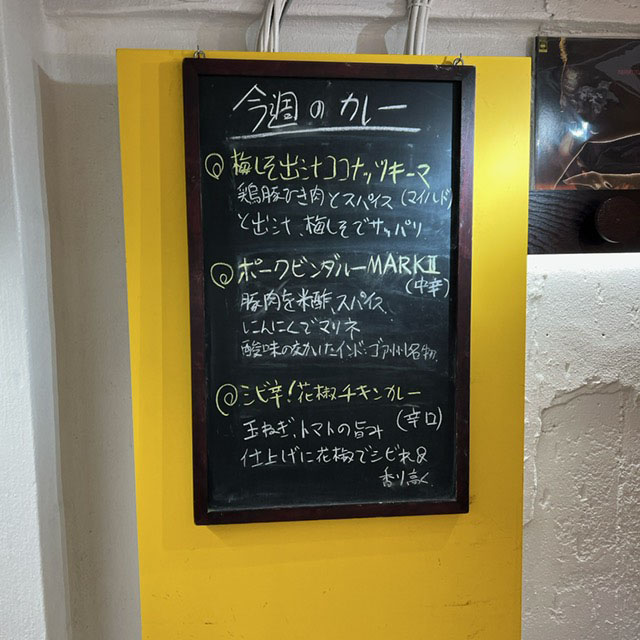 今週のカレー
◎ 梅しそ出汁ココナッツキーマ
鶏豚ひき肉とスパイス (マイルド)
と出汁、梅しそでサッパリ
◎ ポークビンダルーMARKⅡ
(中辛)
豚肉を米酢、スパイス、
にんにくでマリネ
酸味の効いたインド・ゴア州名物。
◎ シビ辛!花椒チキンカレー
(辛口)
玉ねぎ、トマトの旨み
仕上げに花椒でシビれ&
香り高く